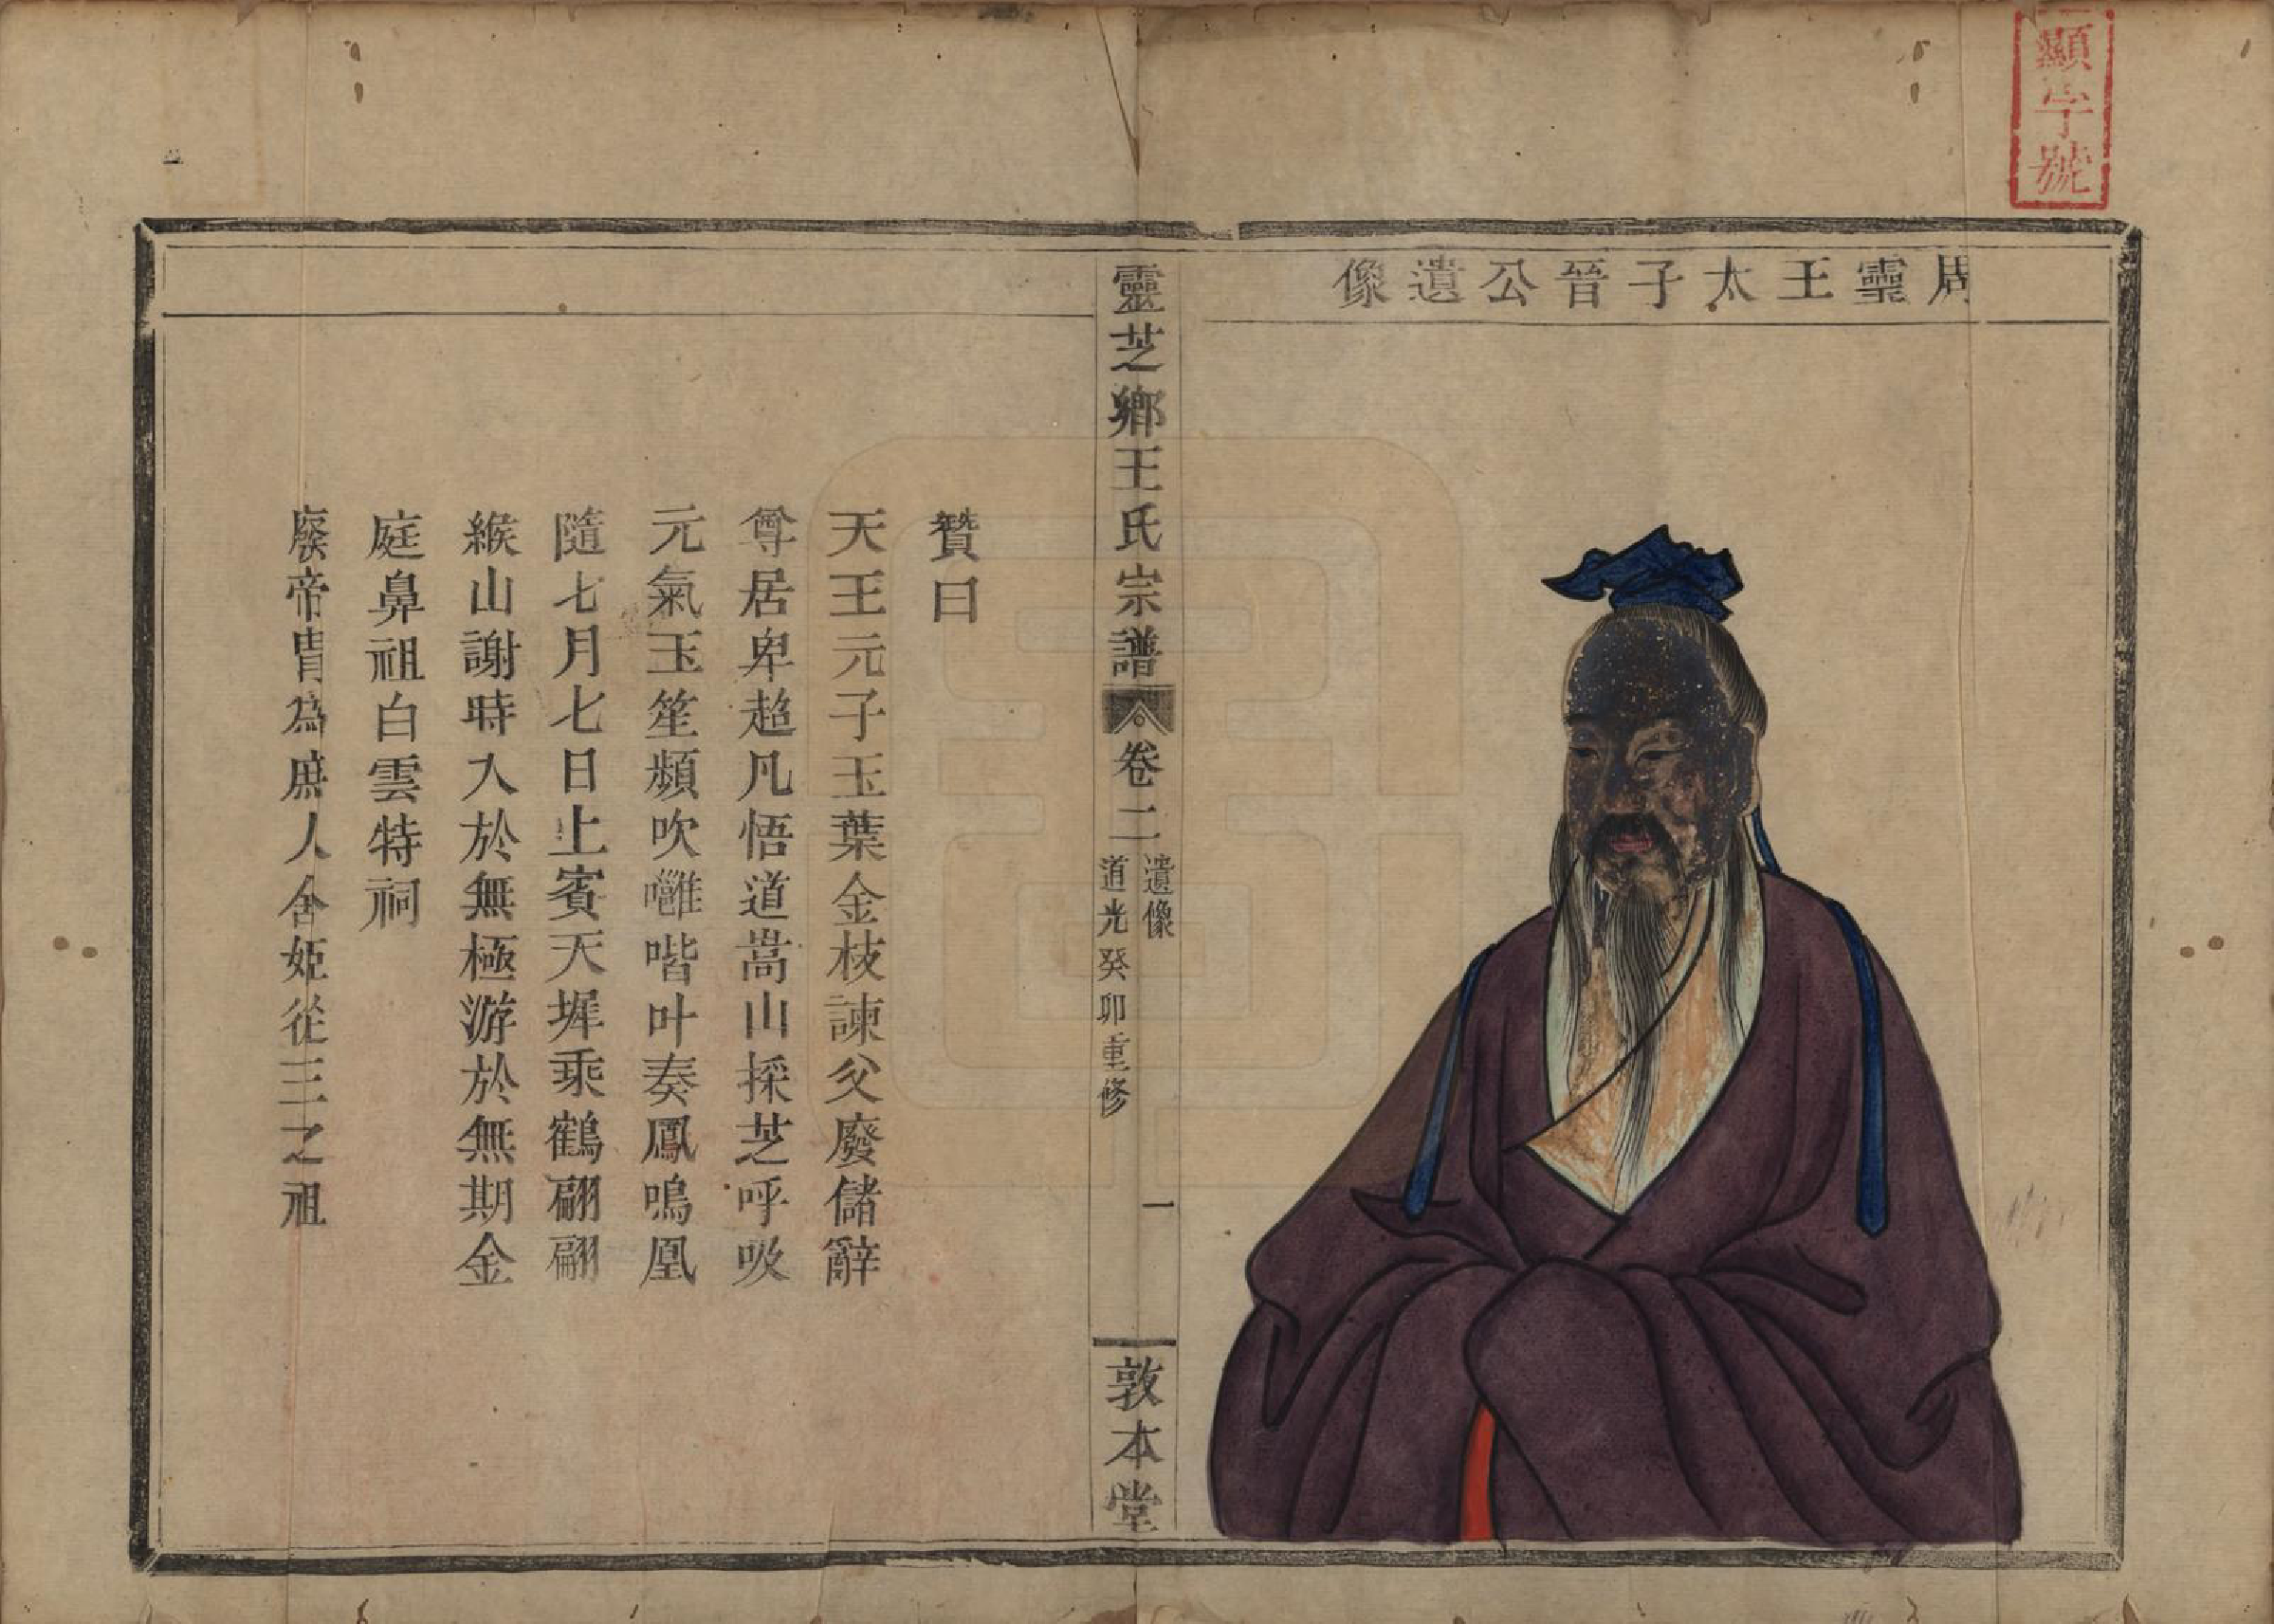 顯字號
周靈王太子晉公遺像
靈芝鄉王氏宗譜
卷二
遺像
道光癸卯重修
一
敦本堂
贊曰
天王元子玉葉金枝諫父廢儲辭
尊居卑超凡悟道嵩山採芝呼吸
元氣玉笙頻吹嗈喈叶奏鳳鳴凰
隨七月七日上賓天墀乘鶴翩翩
緱山謝時入於無極游於無期金
庭鼻祖白雲特祠
廢帝胄為庶人舍姬從王之祖